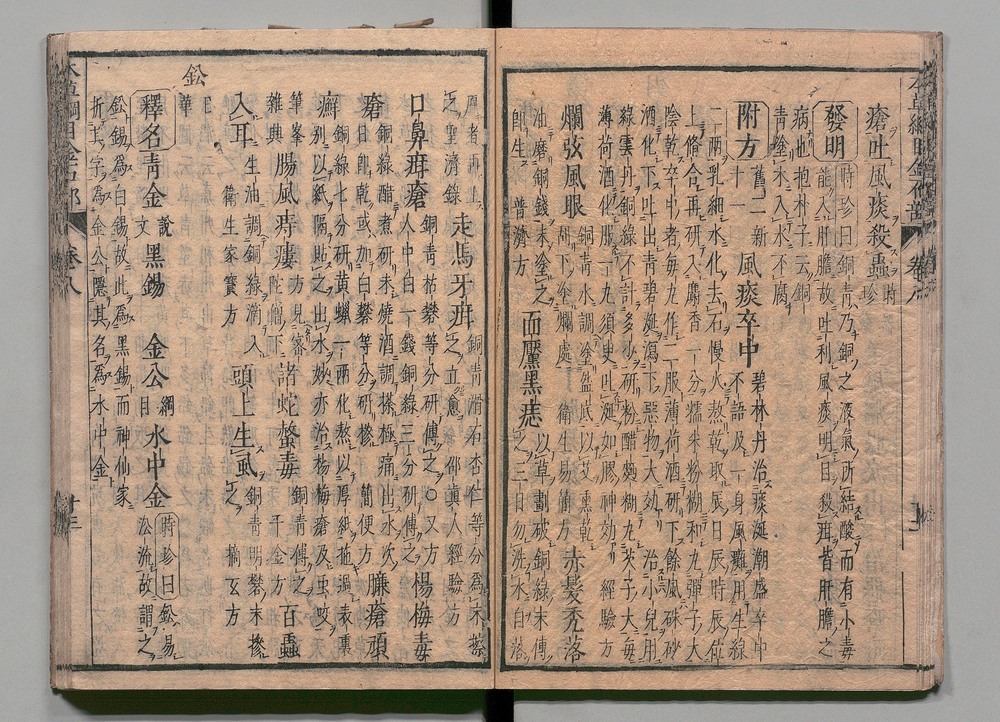 瘡吐風痰殺蟲時珍
發明時珍曰銅青乃銅之液氣所結酸而有小毒
能入肝膽故吐利風痰明目殺疳皆肝膽之
病也抱朴子云銅
青塗木入水不腐
附方舊二新十一 風痰卒中碧林丹治痰涎潮盛卒中
不語及一身風癱用生綠
二兩乳細水化去石慢火熬乾取辰日辰時辰位
上修合再研入麝香一分糯米粉糊和丸彈子大
陰乾卒中者每丸作二服薄荷酒研下餘風硃砂
酒化下吐出青碧涎瀉下惡物大效治小兒用
綠雲丹銅綠不計多少研粉醋麪糊丸芡子大每
薄荷酒化服一丸須臾吐涎如膠神效經驗方
爛弦風眼銅青水調塗盌底以艾熏乾
刮下塗爛處衛生易簡方赤髮禿落
油磨銅錢末塗之
即生普濟方面黶黑痣以草劃破銅綠末傅
之三日勿洗水自落
厚者再上
之聖濟錄走馬牙疳銅青滑石杏仁等分爲末擦
之立愈邵真人經驗方
口鼻疳瘡銅青枯礬等分研傅之○又方
人中白一錢銅綠三分研傅之楊梅毒
瘡銅綠醋煮研末燒酒調搽極痛出水次
日即乾或加白礬等分研摻簡便方臁瘡頑
癬銅綠七分研黃蠟一兩化熬以厚紙拖過表裏
別以紙隔貼之出水妙亦治楊梅瘡及虫咬
筆峯
雜興腸風痔瘻方見密
陀僧下諸蛇螫毒銅青傅之
千金方百蟲
入耳生油調銅綠滴入
衛生家寶方頭上生風銅青明礬末摻
之摘玄方
鈆
釋名青金說文黑錫 金公綱目水中金時珍曰鈆易
沿流故謂之
鈆錫爲白錫故此爲黑錫而神仙家
折其字爲金公隱其名爲水中金